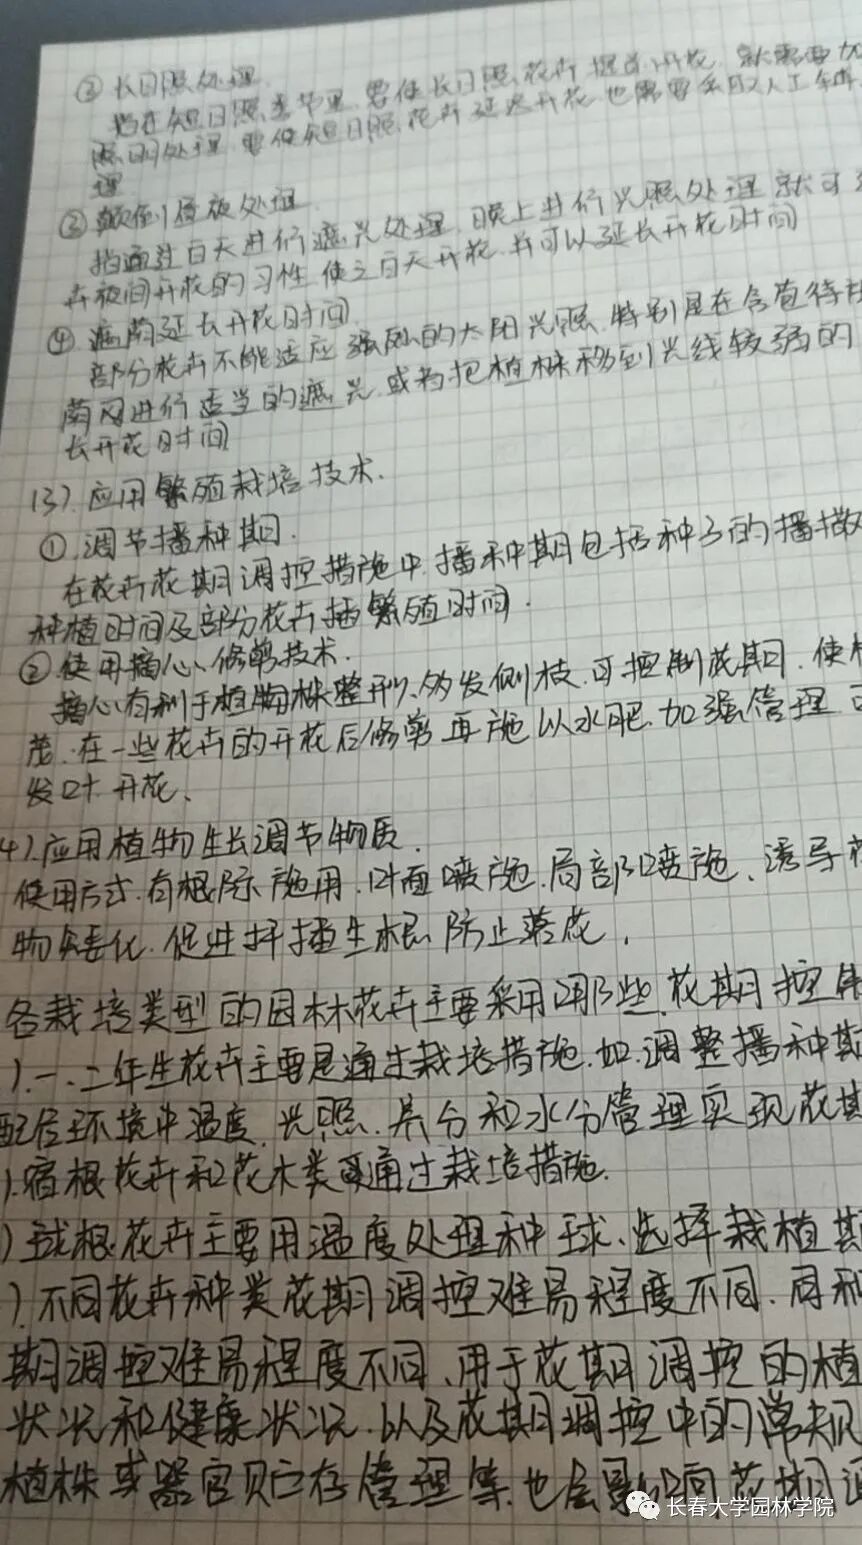 ② 长日照处理
指在短日照季节里,要使长日照花卉提前开花,就需要加
照明处理,要使短日照花卉延迟开花也需要采取人工
理
③ 颠倒昼夜处理
指通过白天进行遮光处理,晚上进行光照处理就可
卉夜间开花的习性,使之白天开花,并可以延长开花时间
④ 遮荫延长开花时间
部分花卉不能适应强烈的太阳光照,特别是在含苞待
荫网进行适当的遮光,或者把植株移到光线较弱的
长开花时间
(3).应用繁殖栽培技术.
①.调节播种期.
在花卉花期调控措施中,播种期包括种子的播撒
种植时间及部分花卉插繁殖时间.
②.使用摘心、修剪技术.
摘心有利于植株整形、多发侧枝,可控制花期,使植
茂.在一些花卉的开花后修剪再施以水肥,加强管理,可
发叶、开花、
4).应用植物生长调节物质.
使用方式.有根际施用、叶面喷施、局部喷施、诱导
物矮化.促进扦插生根,防止落花,
各栽培类型的园林花卉主要采用哪些花期控
).一、二年生花卉主要是通过栽培措施.如.调整播种期
配合环境中温度、光照、养分和水分管理实现花期
).宿根花卉和花木类可通过栽培措施.
)球根花卉主要用温度处理种球、选择栽植期
).不同花卉种类花期调控难易程度不同.同
期调控难易程度不同、用于花期调控的植
状况和健康状况.以及花期调控中的常规
植株或器官贮存管理等.也会影响花期
长春大学园林学院